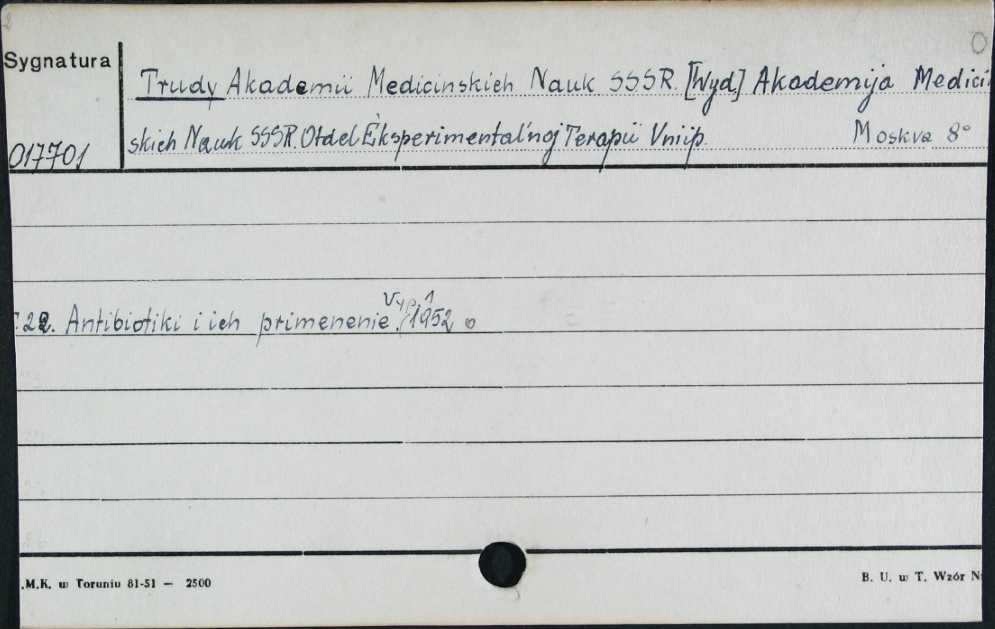 O
Sygnatura
Trudy Akademii Medicinskich Nauk SSSR. [Wyd.] Akademija Medici
017701 skich Nauk SSSR. Otdel Éksperimental'noj Terapii Vniip. Moskva 8°
Vyp. 1
t. 22. Antibiotiki i ich primenenie. 1952
.M.K. w Toruniu 81-51 — 2500
B. U. w T. Wzór N